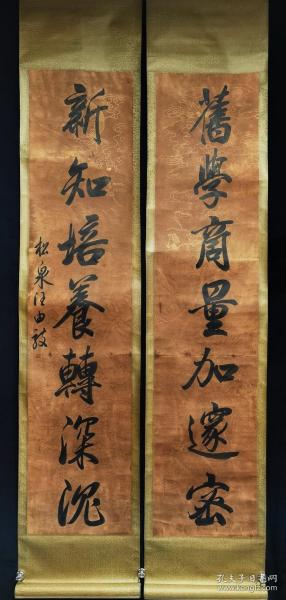 舊學商量加邃密
新知培養轉深沈
松泉汪由敦
孔夫子旧书网